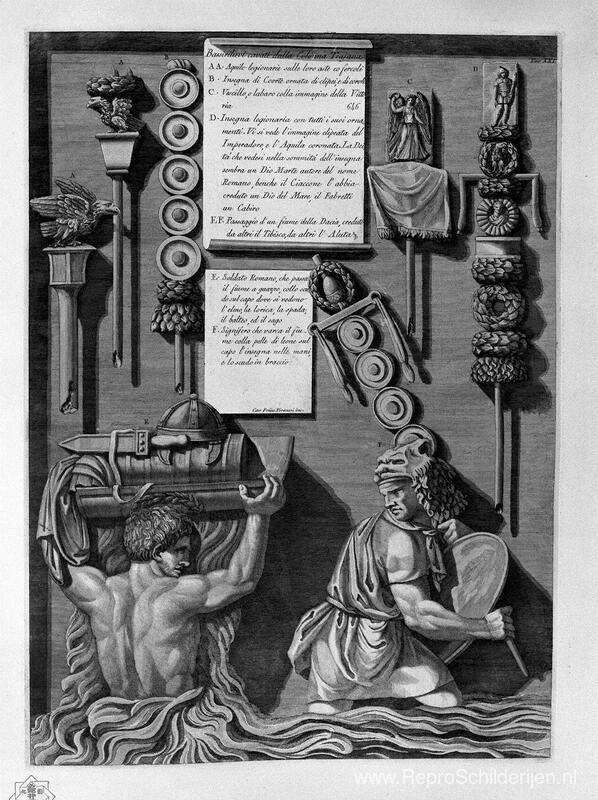 Bassirilievi cavati dalla Colonna Trajana
A A · Aquile legionarie sulle loro aste co fercoli
B · Insegna di Coorte ornata di clipei, e di corone
C · Vessillo, e labaro colla immagine della Vitto
ria 646
D · Insegna legionaria con tutti i suoi orna
menti. Vi si vede l'immagine clipeata del
Imperadore, e l'Aquila coronata. La Dei
tà che vedesi nella sommità dell'insegna
sembra un Dio Marte autore del nome
Romano, benche il Ciaccone l'abbia
creduto un Dio del Mare, il Fabretti
un Cabiro
E, F. Passaggio d'un fiume della Dacia creduto
da altri il Tibisco, da altri l'Aluta
E · Soldato Romano, che passa
il fiume a guazzo, collo scu
do sul capo dove si vedono
l'elmo, la lorica, la spada,
il balteo, ed il sago
F. Signifero che varca il fiu
me colla pelle di leone sul
capo l'insegna nelle mani
e lo scudo in braccio
Cav. Piranesi inc.
A
B
C
D
A
E
F
www.ReproSchilderijen.nl